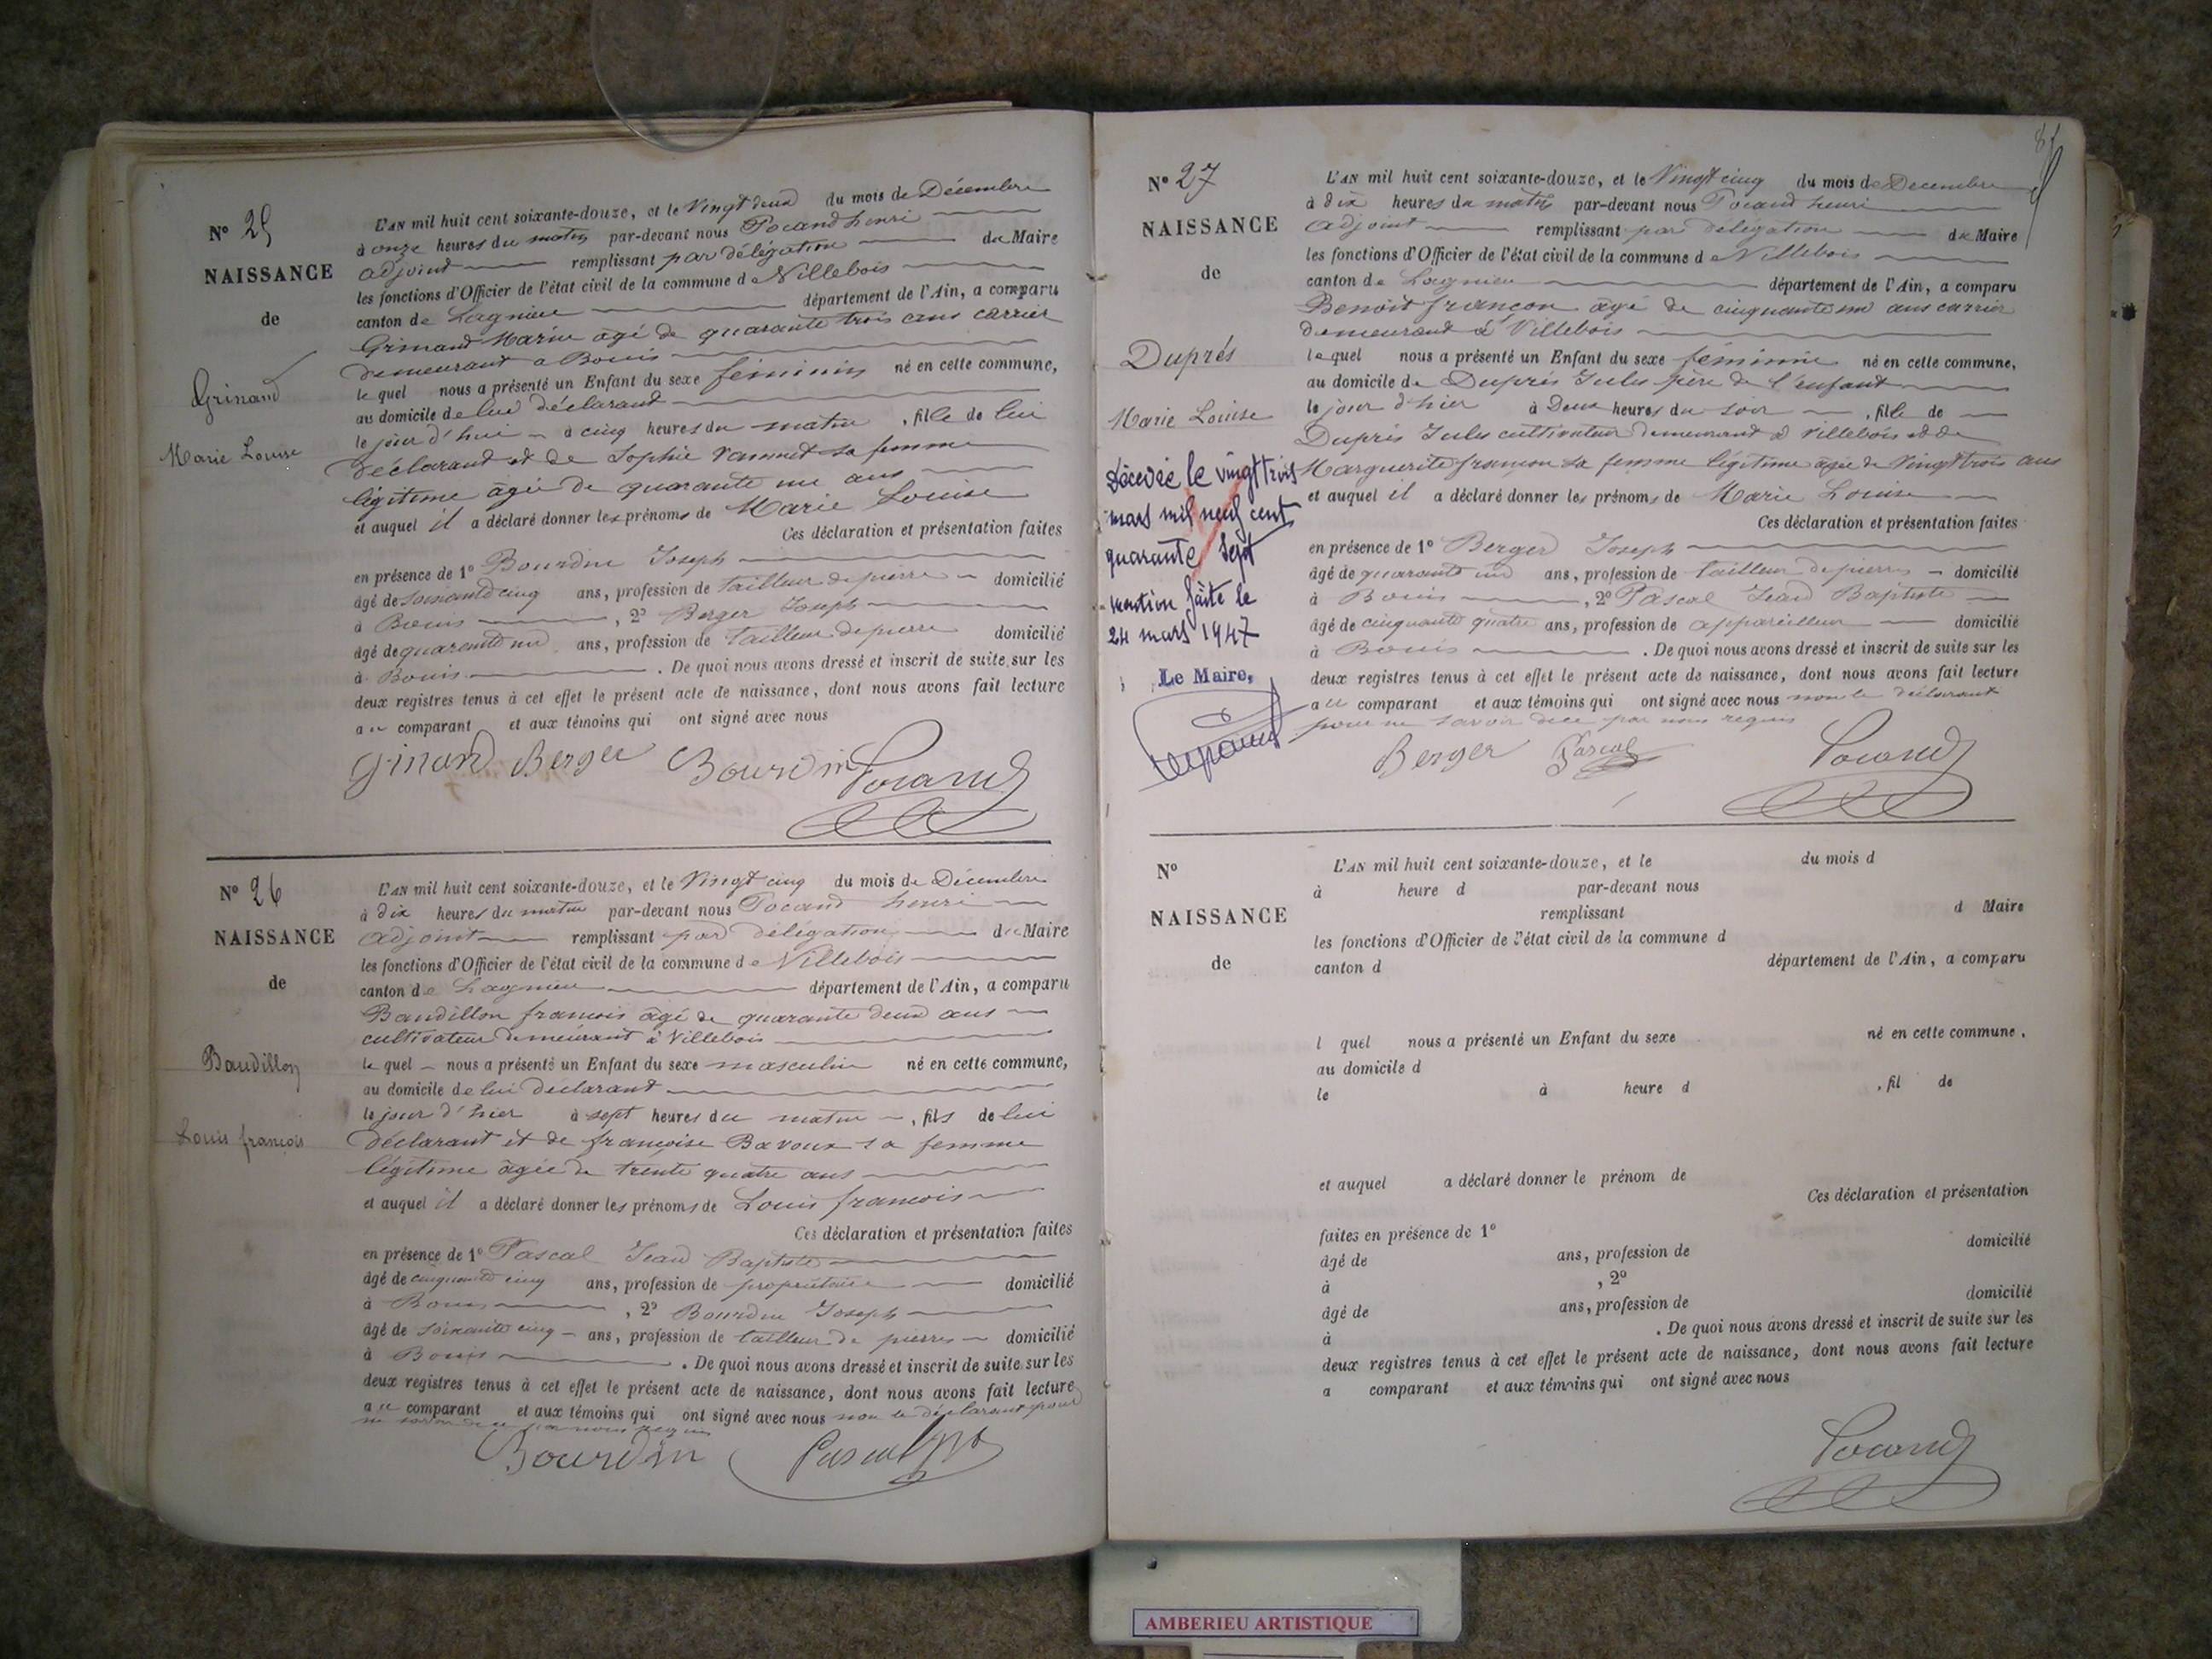 N° 25
NAISSANCE
de
Grinand
Marie Louise
L'AN mil huit cent soixante-douze, et le Vingt deux du mois de Décembre
à onze heures du matin par-devant nous Pocand henri
adjoint remplissant par délégation du Maire
les fonctions d'Officier de l'état civil de la commune de Villebois
canton de Lagnieu département de l'Ain, a comparu
Grinand Marin agé de quarante trois ans carrier
demeurant a Bouis
lequel nous a présenté un Enfant du sexe féminin né en cette commune,
au domicile de lui déclarant
le jour d'hui à cinq heures du matin, fille de lui
déclarant et de Sophie sa femme
légitime âgée de quarante un ans
et auquel il a déclaré donner les prénoms de Marie Louise
Ces déclaration et présentation faites
en présence de 1° Bourdin Joseph
âgé de soixante cinq ans, profession de tailleur de pierre domicilié
à Bouis, 2° Berger Joseph
âgé de quarante un ans, profession de tailleur de pierre domicilié
à Bouis. De quoi nous avons dressé et inscrit de suite sur les
deux registres tenus à cet effet le présent acte de naissance, dont nous avons fait lecture
au comparant et aux témoins qui ont signé avec nous
Grinand Berger Bourdin Pocand
N° 26
NAISSANCE
de
Baudillon
Louis françois
L'AN mil huit cent soixante-douze, et le Vingt cinq du mois de Décembre
à dix heures du matin par-devant nous Pocand henri
adjoint remplissant par délégation du Maire
les fonctions d'Officier de l'état civil de la commune de Villebois
canton de Lagnieu département de l'Ain, a comparu
Baudillon francois âgé de quarante deux ans
cultivateur demeurant à Villebois
lequel nous a présenté un Enfant du sexe masculin né en cette commune,
au domicile de lui déclarant
le jour d'hier à sept heures du matin, fils de lui
déclarant et de françoise Bavoux sa femme
légitime âgée de trente quatre ans
et auquel il a déclaré donner les prénoms de Louis francois
Ces déclaration et présentation faites
en présence de 1° Pascal Jean Baptiste
âgé de cinquante cinq ans, profession de propriétaire domicilié
à Bouis, 2° Bourdin Joseph
âgé de soixante cinq ans, profession de tailleur de pierres domicilié
à Bouis. De quoi nous avons dressé et inscrit de suite sur les
deux registres tenus à cet effet le présent acte de naissance, dont nous avons fait lecture
au comparant et aux témoins qui ont signé avec nous non le déclarant pour
ne savoir de ce par nous requis
Bourdin Pascal
N° 27
NAISSANCE
de
Duprés
Marie Louise
Décédée le vingt trois
mars mil neuf cent
quarante sept
mention faite le
24 mars 1947
Le Maire,
L'AN mil huit cent soixante-douze, et le Vingt cinq du mois de Decembre
à dix heures du matin par-devant nous Pocand henri
adjoint remplissant par délégation du Maire
les fonctions d'Officier de l'état civil de la commune de Villebois
canton de Lagnieu département de l'Ain, a comparu
Benoit françon âgé de cinquante un ans carrier
demeurant à Villebois
lequel nous a présenté un Enfant du sexe féminin né en cette commune,
au domicile de Duprés Jules père de l'enfant
le jour d'hier à Deux heures du soir, fille de
Duprés Jules cultivateur demeurant à Villebois et de
Marguerite françon sa femme légitime âgée de Vingt trois ans
et auquel il a déclaré donner les prénoms de Marie Louise
Ces déclaration et présentation faites
en présence de 1° Berger Joseph
âgé de quarante un ans, profession de tailleur de pierres domicilié
à Bouis, 2° Pascal Jean Baptiste
âgé de cinquante quatre ans, profession de appareilleur domicilié
à Bouis. De quoi nous avons dressé et inscrit de suite sur les
deux registres tenus à cet effet le présent acte de naissance, dont nous avons fait lecture
au comparant et aux témoins qui ont signé avec nous non le déclarant
pour ne savoir de ce par nous requis
Berger Pascal Pocand
N°
NAISSANCE
de
L'AN mil huit cent soixante-douze, et le du mois d
à heure d par-devant nous
remplissant d Maire
les fonctions d'Officier de l'état civil de la commune d
canton d département de l'Ain, a comparu
l quel nous a présenté un Enfant du sexe né en cette commune.
au domicile d
le à heure d , fil de
et auquel a déclaré donner le prénom de
Ces déclaration et présentation
faites en présence de 1°
âgé de ans, profession de domicilié
à , 2°
âgé de ans, profession de domicilié
à . De quoi nous avons dressé et inscrit de suite sur les
deux registres tenus à cet effet le présent acte de naissance, dont nous avons fait lecture
a comparant et aux témoins qui ont signé avec nous
Pocand
AMBERIEU ARTISTIQUE